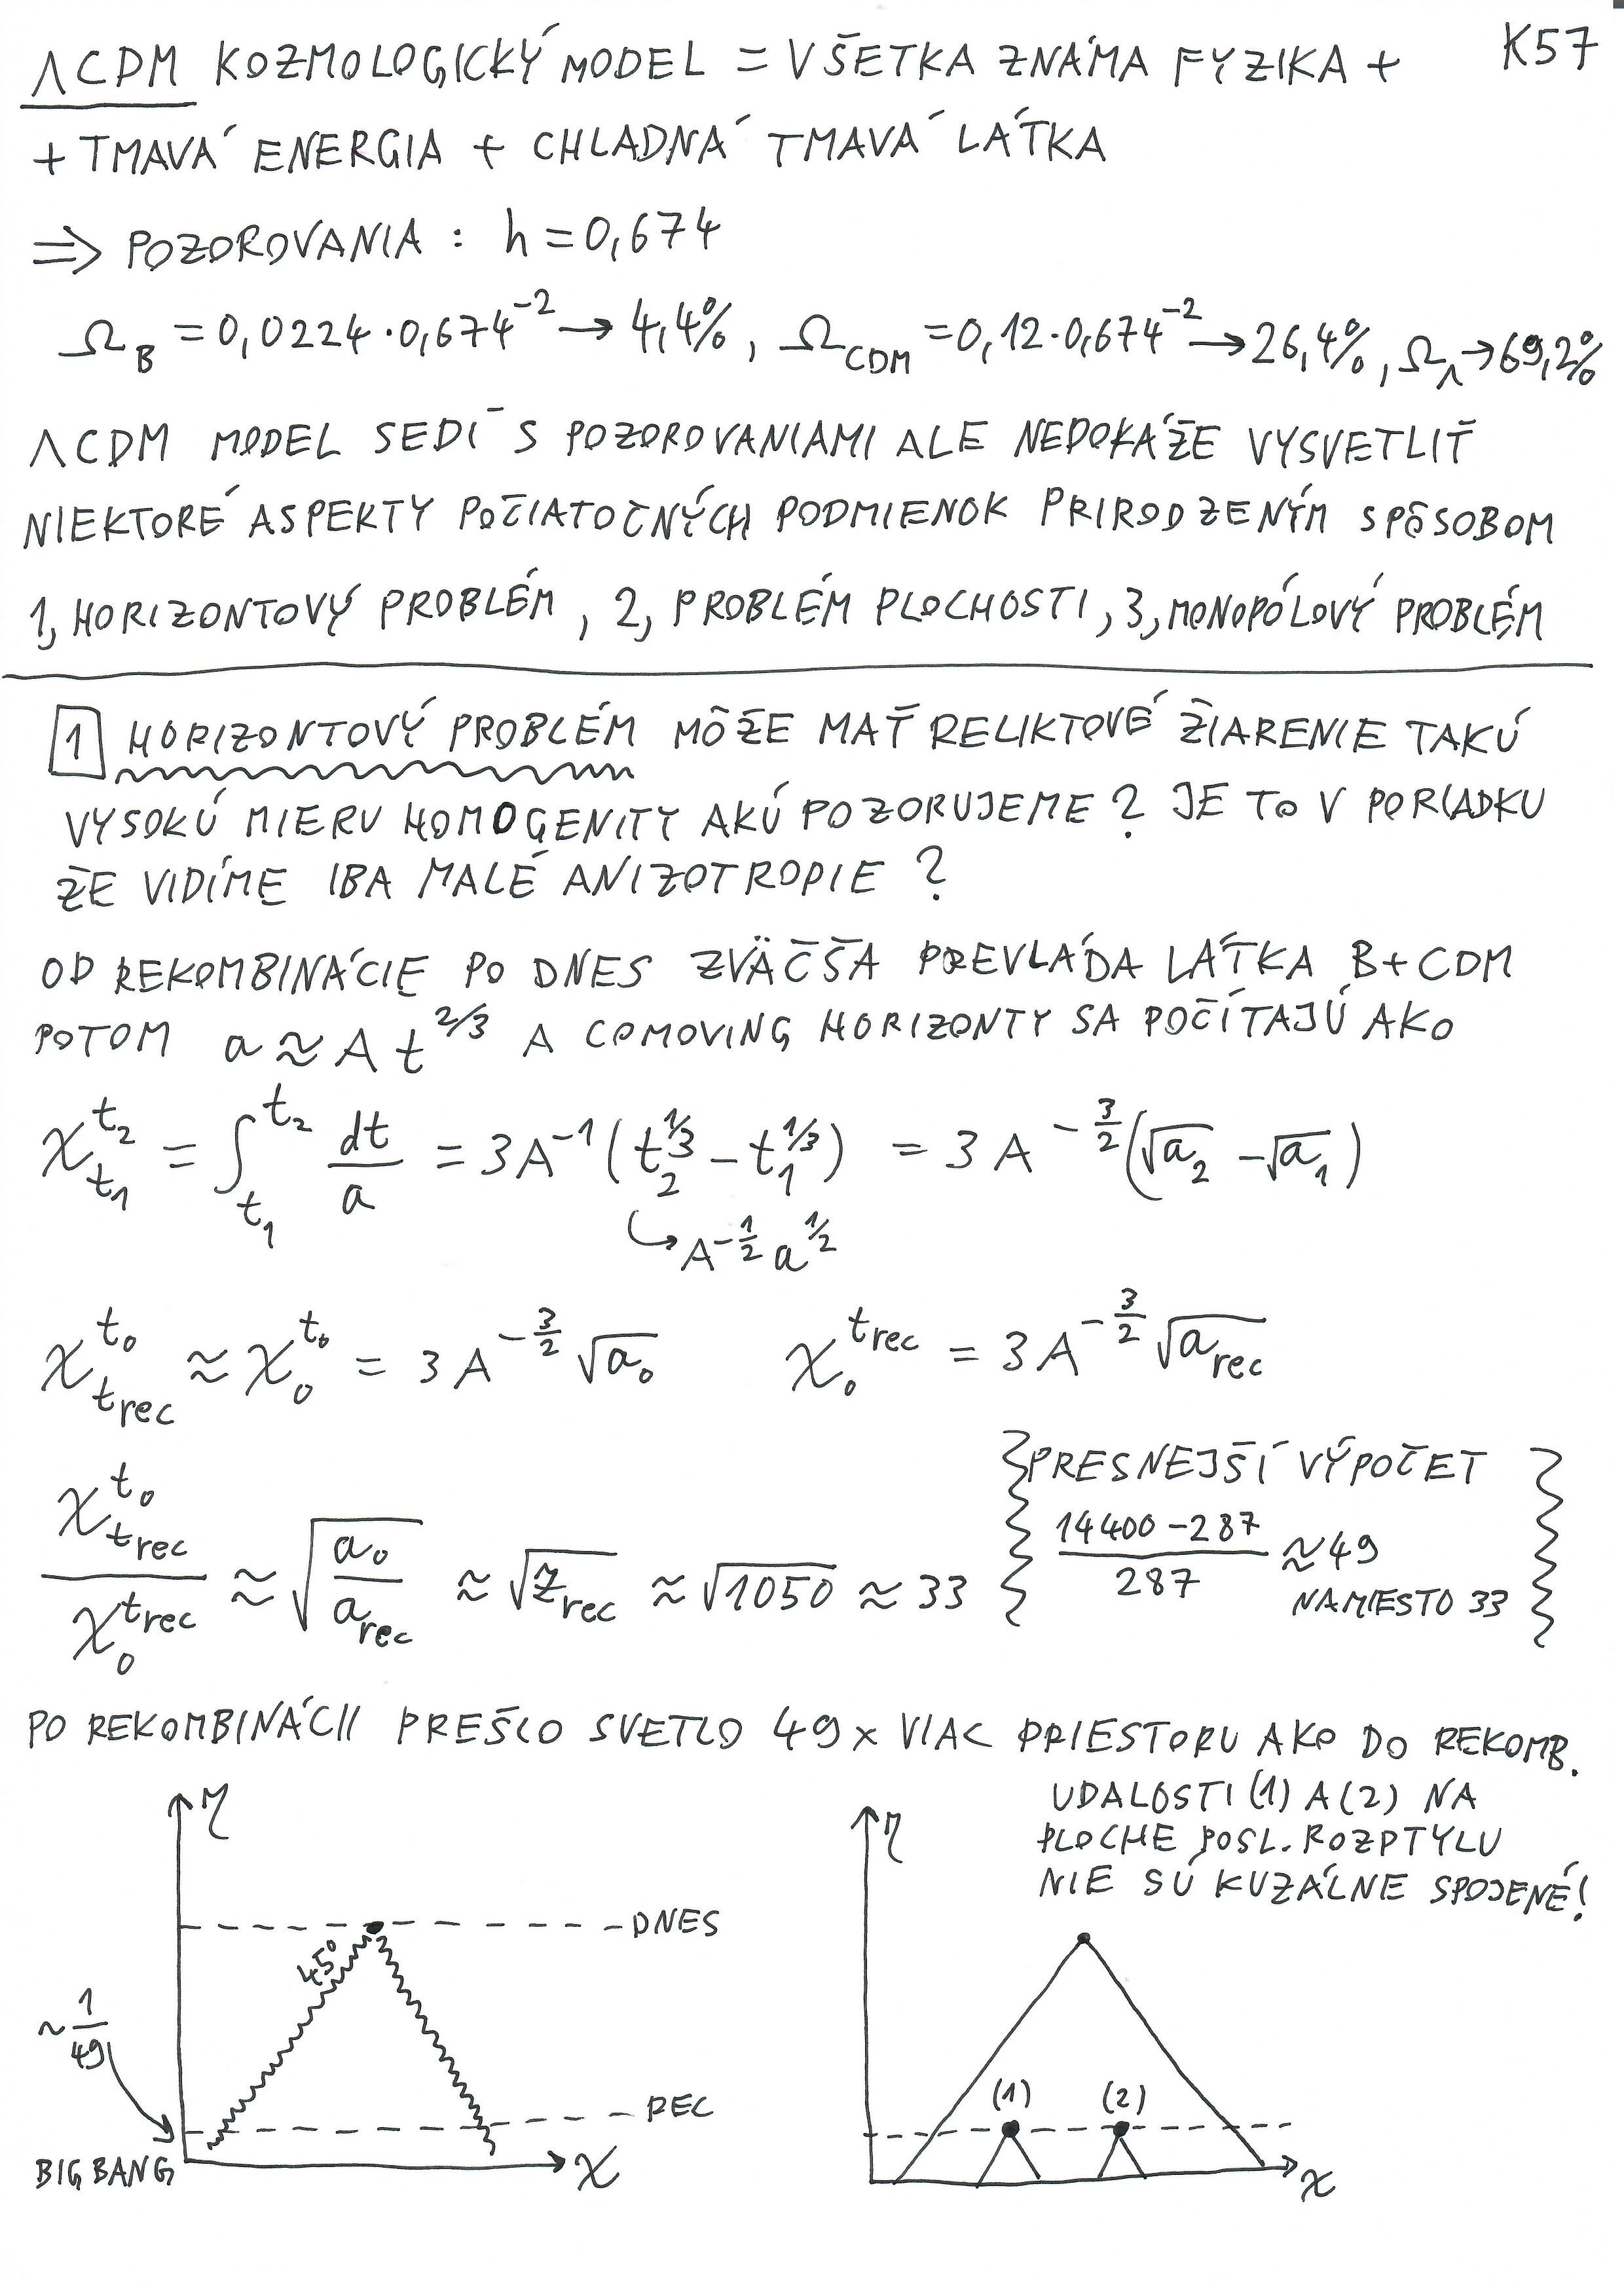 ΛCDM KOZMOLOGICKÝ MODEL = VŠETKA ZNÁMA FYZIKA + K57
+ TMAVÁ ENERGIA + CHLADNÁ TMAVÁ LÁTKA
⇒ POZOROVANIA : h = 0,674
Ω_B = 0,0224 · 0,674^{-2} → 4,4%, Ω_{CDM} = 0,12 · 0,674^{-2} → 26,4%, Ω_Λ → 69,2%
ΛCDM MODEL SEDÍ S POZOROVANIAMI ALE NEDOKÁŽE VYSVETLIŤ
NIEKTORÉ ASPEKTY POČIATOČNÝCH PODMIENOK PRIRODZENÝM SPÔSOBOM
1, HORIZONTOVÝ PROBLÉM , 2, PROBLÉM PLOCHOSTI , 3, MONOPÓLOVÝ PROBLÉM
1 HORIZONTOVÝ PROBLÉM MÔŽE MAŤ RELIKTOVÉ ŽIARENIE TAKÚ
VYSOKÚ MIERU HOMOGENITY AKÚ POZORUJEME ? JE TO V PORIADKU
ŽE VIDÍME IBA MALÉ ANIZOTROPIE ?
OD REKOMBINÁCIE PO DNES ZVÄČŠA PREVLÁDA LÁTKA B+CDM
POTOM a ≈ A t^{2/3} A COMOVING HORIZONTY SA POČÍTAJÚ AKO
χ_{t_1}^{t_2} = ∫_{t_1}^{t_2} dt/a = 3A^{-1} (t_2^{1/3} - t_1^{1/3}) = 3 A^{-3/2} (√a_2 - √a_1)
↳ A^{-1/2} a^{1/2}
χ_{t_rec}^{t_0} ≈ χ_0^{t_0} = 3 A^{-3/2} √a_0 χ_0^{t_rec} = 3 A^{-3/2} √a_rec
PRESNEJŠÍ VÝPOČET
χ_{t_rec}^{t_0} / χ_0^{t_rec} ≈ √(a_0/a_rec) ≈ √z_rec ≈ √1050 ≈ 33 (14400 - 287)/287 ≈ 49
NAMIESTO 33
PO REKOMBINÁCII PREŠLO SVETLO 49 x VIAC PRIESTORU AKO DO REKOMB.
UDALOSTI (1) A (2) NA
PLOCHE POSL. ROZPTYLU
NIE SÚ KUZÁLNE SPOJENÉ!
η
DNES
45°
~ 1/49
REC
BIG BANG
χ
η
(1) (2)
χ